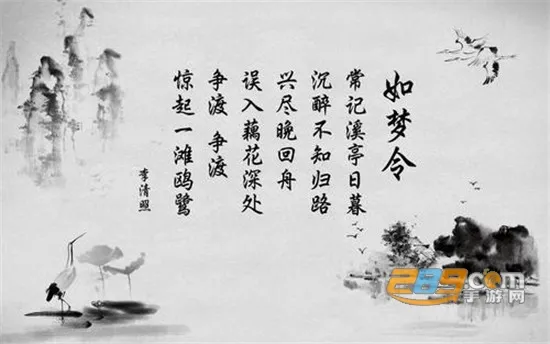 如梦令
常记溪亭日暮
沉醉不知归路
兴尽晚回舟
误入藕花深处
争渡 争渡
惊起一滩鸥鹭
李清照
289.com
手游网